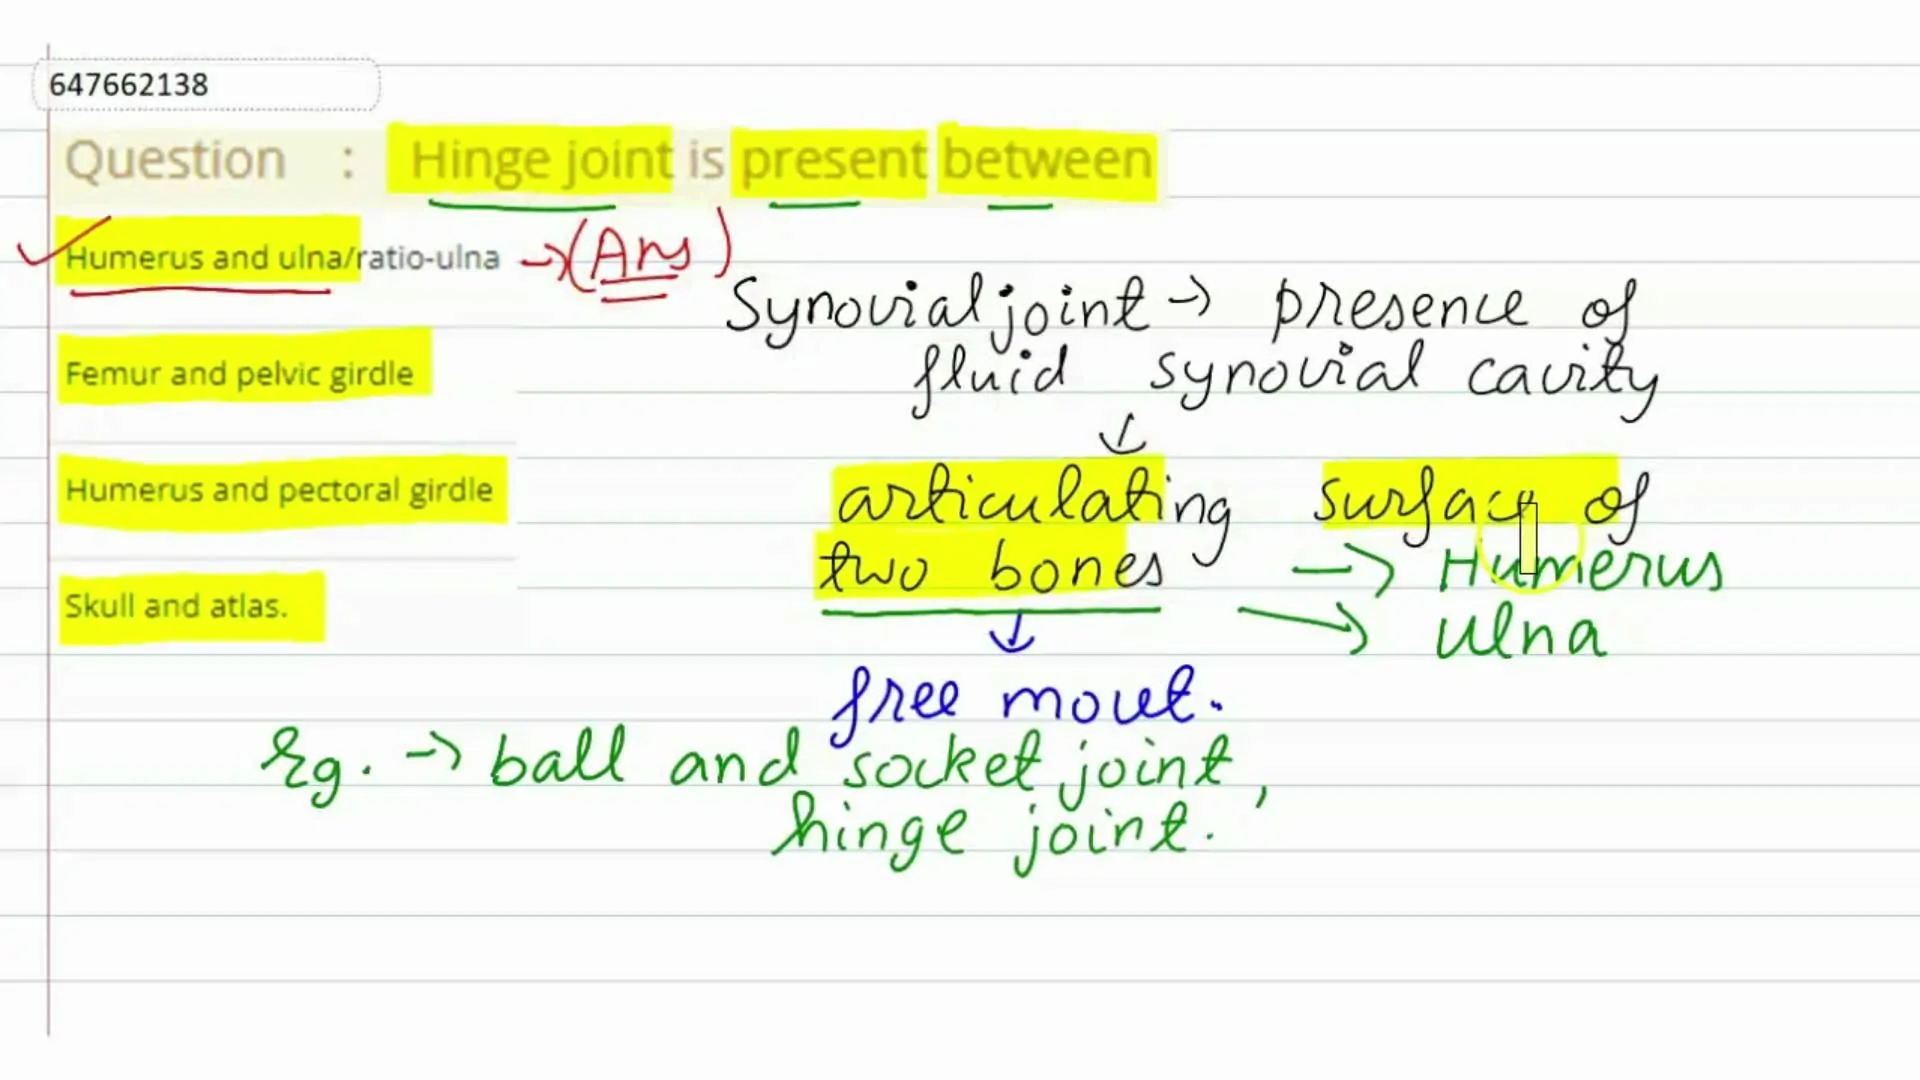 647662138
Question : Hinge joint is present between
Humerus and ulna/ratio-ulna → (Ans)
Femur and pelvic girdle
Humerus and pectoral girdle
Skull and atlas.
Synovial joint → presence of
fluid synovial cavity
↓
articulating surface of
two bones → Humerus
→ Ulna
↓
free movt.
Eg. → ball and socket joint,
hinge joint.